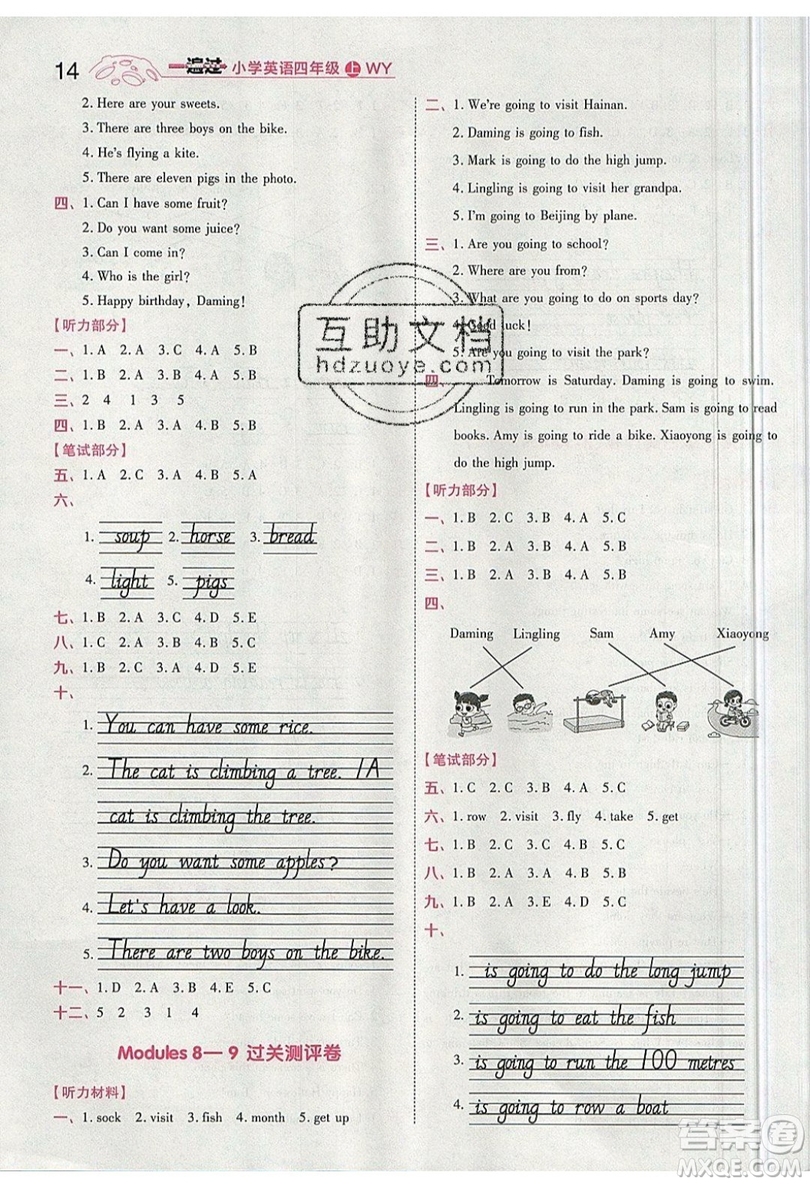 14 一遍过 小学英语四年级 上 WY
2. Here are your sweets.
3. There are three boys on the bike.
4. He's flying a kite.
5. There are eleven pigs in the photo.
四、1. Can I have some fruit?
2. Do you want some juice?
3. Can I come in?
4. Who is the girl?
5. Happy birthday, Daming!
【听力部分】
一、1. A 2. A 3. C 4. A 5. B
二、1. B 2. C 3. A 4. A 5. B
三、2 4 1 3 5
四、1. B 2. A 3. C 4. A 5. B
【笔试部分】
五、1. A 2. C 3. A 4. B 5. A
六、
1. soup 2. horse 3. bread
4. light 5. pigs
七、1. B 2. A 3. C 4. D 5. E
八、1. C 2. A 3. B 4. D 5. E
九、1. B 2. A 3. C 4. D 5. E
十、
1. You can have some rice.
2. The cat is climbing a tree. /A
cat is climbing the tree.
3. Do you want some apples?
4. Let's have a look.
5. There are two boys on the bike.
十一、1. D 2. A 3. B 4. E 5. C
十二、5 2 3 1 4
Modules 8—9 过关测评卷
【听力材料】
一、1. sock 2. visit 3. fish 4. month 5. get up
二、1. We're going to visit Hainan.
2. Daming is going to fish.
3. Mark is going to do the high jump.
4. Lingling is going to visit her grandpa.
5. I'm going to Beijing by plane.
三、1. Are you going to school?
2. Where are you from?
3. What are you going to do on sports day?
4. Good luck!
5. Are you going to visit the park?
四、Tomorrow is Saturday. Daming is going to swim.
Lingling is going to run in the park. Sam is going to read
books. Amy is going to ride a bike. Xiaoyong is going to
do the high jump.
【听力部分】
一、1. B 2. C 3. B 4. A 5. C
二、1. B 2. A 3. B 4. A 5. B
三、1. B 2. A 3. B 4. A 5. B
四、
Daming Lingling Sam Amy Xiaoyong
【笔试部分】
五、1. C 2. C 3. B 4. A 5. C
六、1. row 2. visit 3. fly 4. take 5. get
七、1. B 2. C 3. B 4. C 5. B
八、1. B 2. A 3. C 4. A 5. C
九、1. B 2. A 3. E 4. D 5. C
十、
1. is going to do the long jump
2. is going to eat the fish
3. is going to run the 100 metres
4. is going to row a boat
互助文档
hdzuoye.com
答案圈
MXQE.COM